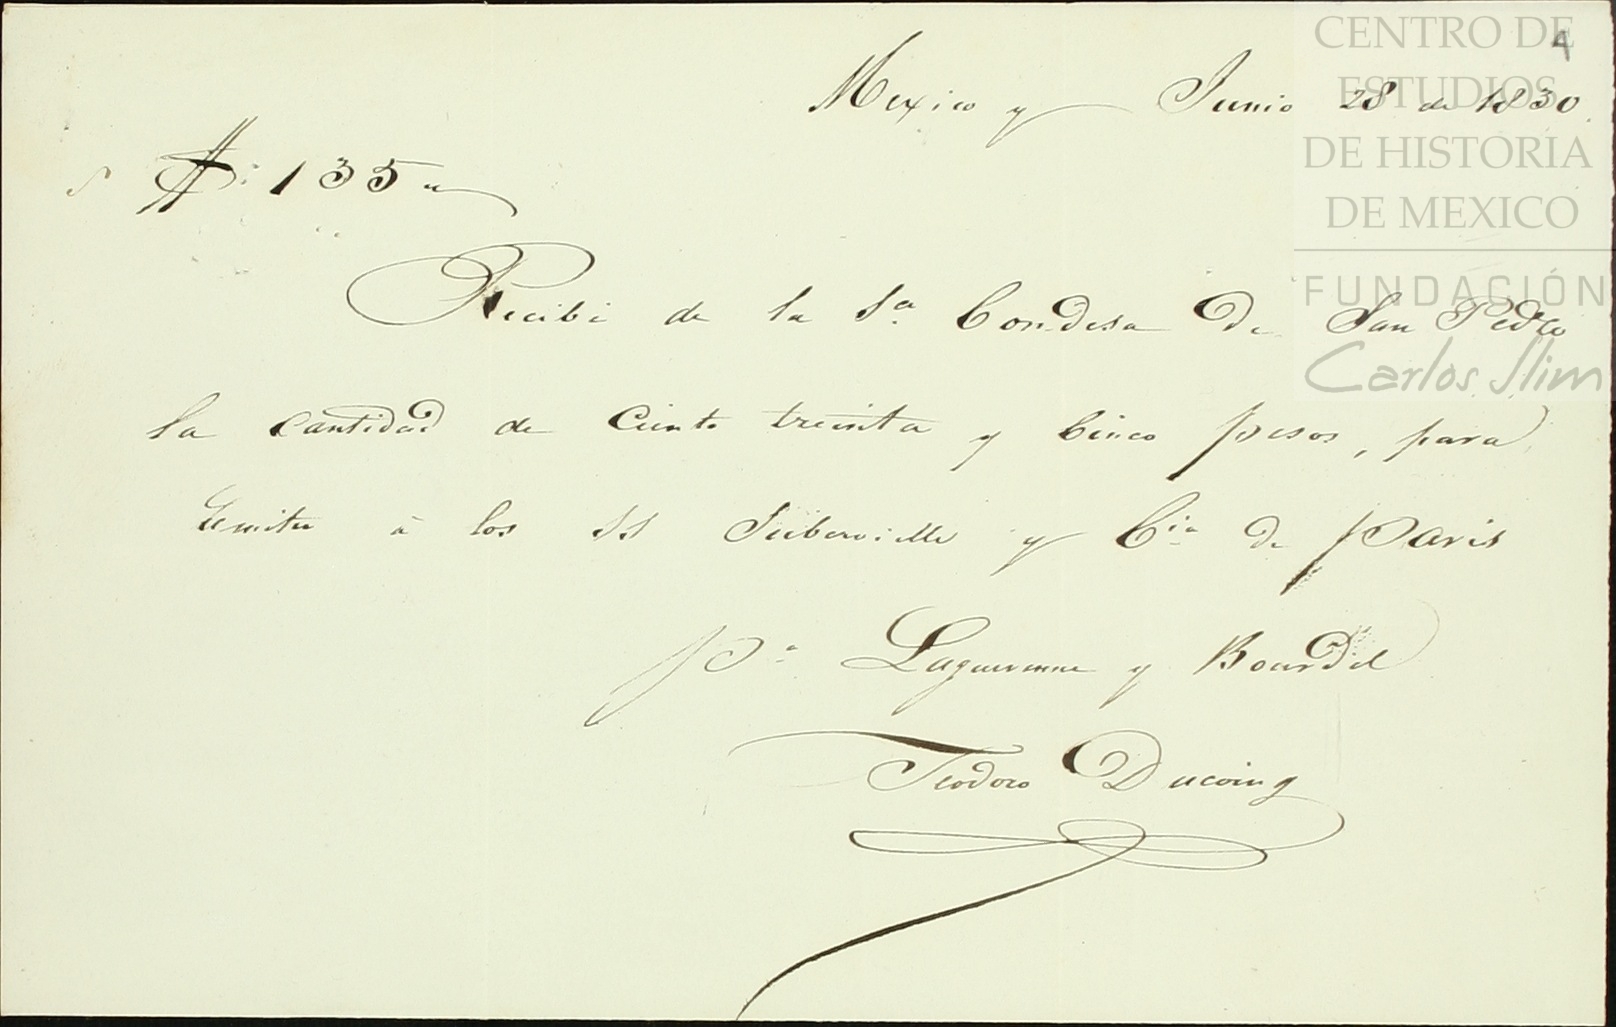 4
Mexico y Junio 28 de 1830.
$: 135 "
Recibi de la Sa. Condesa de San Pedro
la cantidad de Ciento treinta y Cinco pesos, para
remitir à los SS y Cia. de Paris
pr. Laguerenne y Bourdel
Teodoro Ducoing
CENTRO DE
ESTUDIOS
DE HISTORIA
DE MEXICO
FUNDACIÓN
Carlos Slim